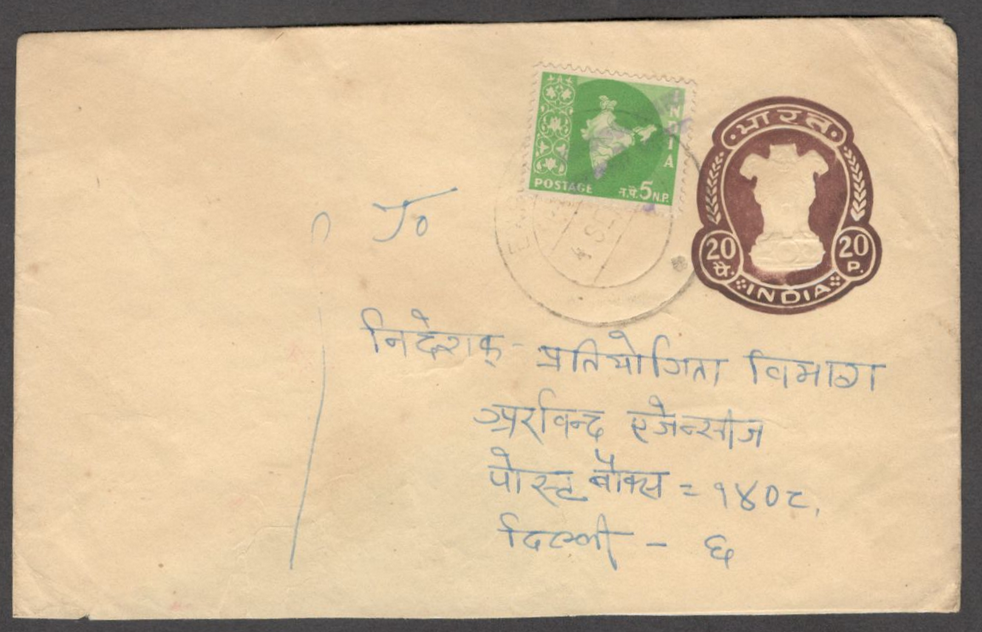 INDIA
POSTAGE न.पै. 5 N.P.
भारत
20 पै. 20 P.
INDIA
To
निदेशक - प्रतियोगिता विभाग
अरविन्द एजेन्सीज
पोस्ट बौक्स = १४०८,
दिल्ली - ६